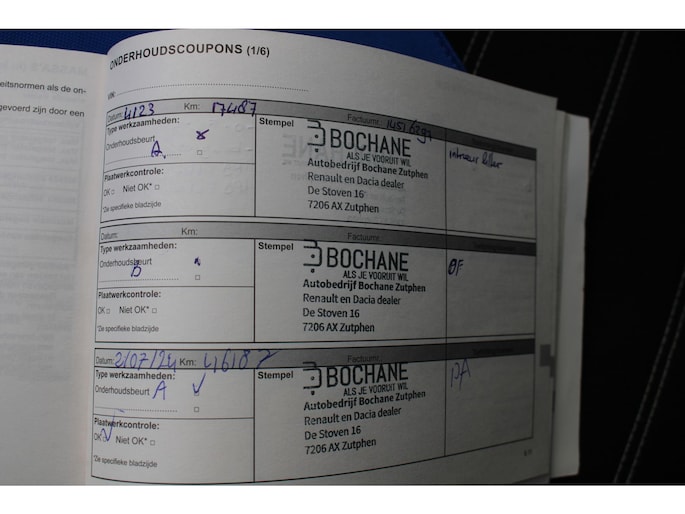 eitsnormen als de on-
gevoerd zijn door een
ONDERHOUDSCOUPONS (1/6)
VIN:
Datum: 4/123 Km: 17487 Factuurnr.:
Type werkzaamheden:
Stempel
Onderhoudsbeurt
A
Plaatwerkcontrole:
OK □ Niet OK* □
*Zie specifieke bladzijde
BOCHANE
ALS JE VOORUIT WIL
Autobedrijf Bochane Zutphen
Renault en Dacia dealer
De Stoven 16
7206 AX Zutphen
interieur filter
Datum: Km: Factuurnr.:
Type werkzaamheden:
Stempel
Onderhoudsbeurt
B
Plaatwerkcontrole:
OK □ Niet OK* □
*Zie specifieke bladzijde
BOCHANE
ALS JE VOORUIT WIL
Autobedrijf Bochane Zutphen
Renault en Dacia dealer
De Stoven 16
7206 AX Zutphen
BF
Datum: 2/07/24 Km: 46187 Factuurnr.:
Type werkzaamheden:
Stempel
Onderhoudsbeurt A
Plaatwerkcontrole:
OK Niet OK* □
*Zie specifieke bladzijde
BOCHANE
ALS JE VOORUIT WIL
Autobedrijf Bochane Zutphen
Renault en Dacia dealer
De Stoven 16
7206 AX Zutphen
PA